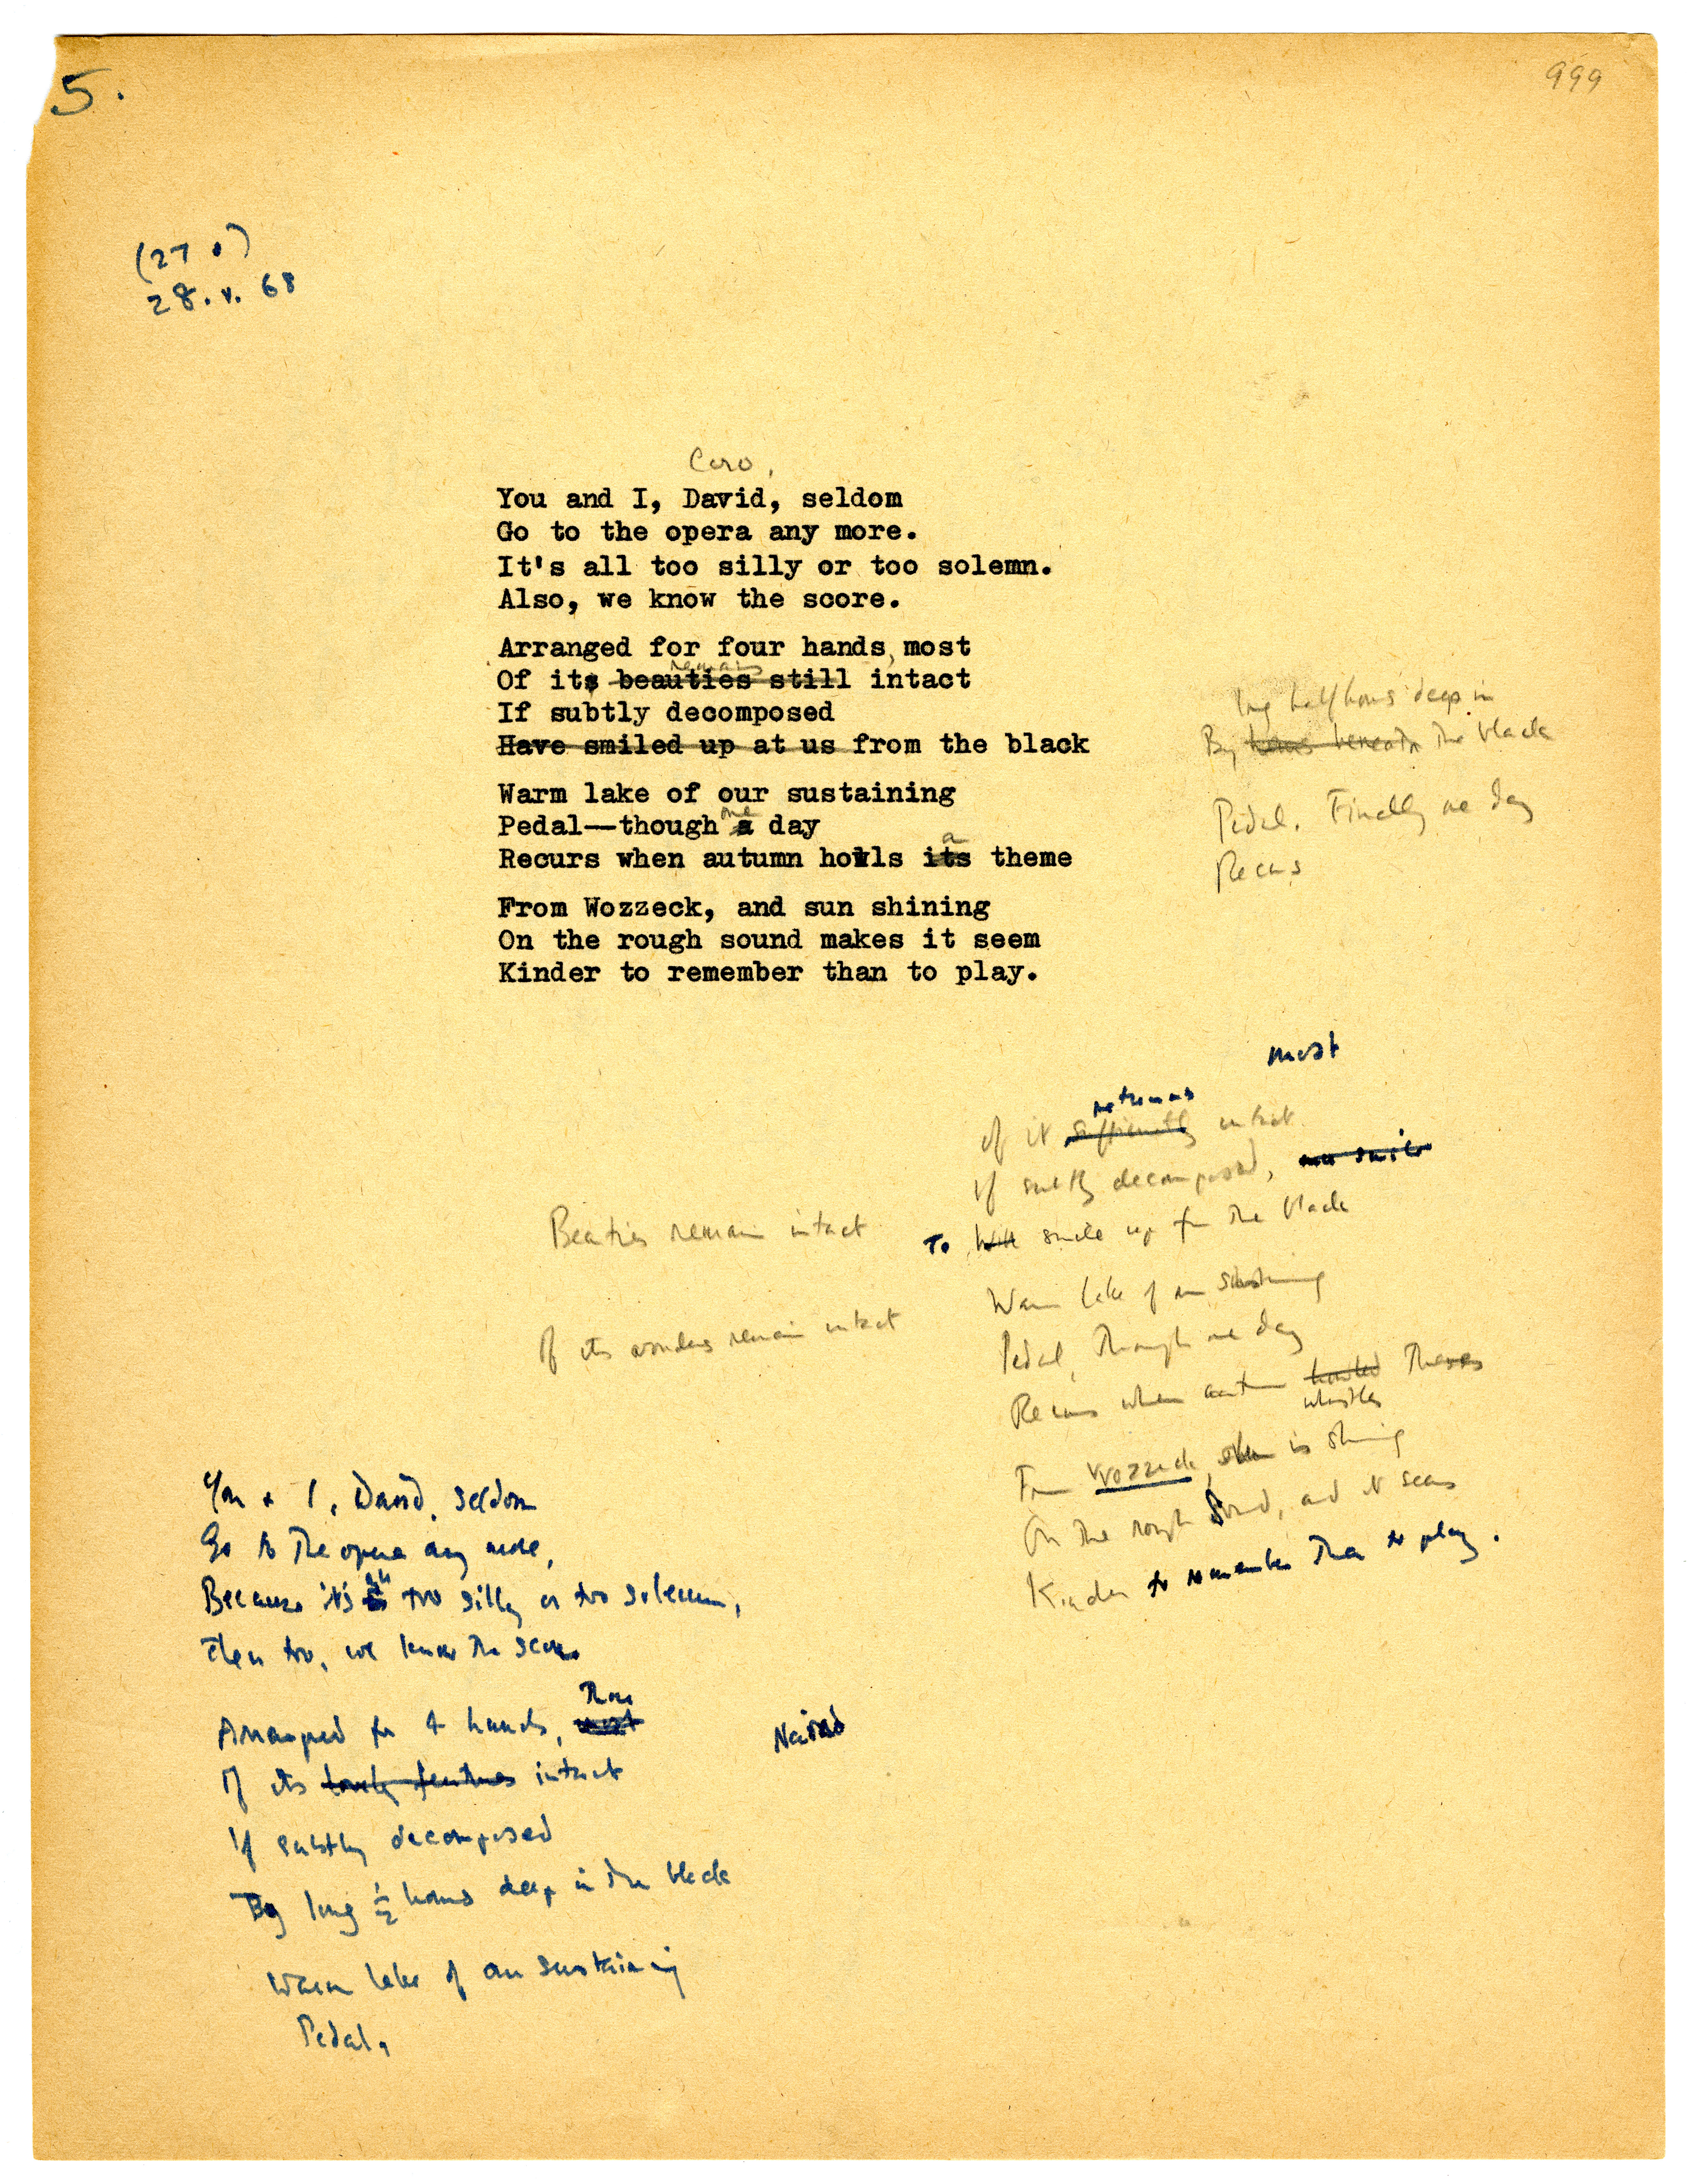 5.
999
(27 .)
28.v.68
Caro,
You and I, David, seldom
Go to the opera any more.
It's all too silly or too solemn.
Also, we know the score.
Arranged for four hands, most
remains
Of its beauties still intact
If subtly decomposed
Have smiled up at us from the black
long half hours deep in
By hours beneath the black
Warm lake of our sustaining
Pedal—though a day
one
Pedal. Finally one day
a
Recurs when autumn howls its theme
Recurs
From Wozzeck, and sun shining
On the rough sound makes it seem
Kinder to remember than to play.
most
Of it sufficiently intact
If subtly decomposed,
To Will smile up from the black
Warm lake of our sustaining
Pedal, though one day
Recurs when autumn howled themes
whistles
From Wozzeck, sun is shining
On the rough sound, and it seems
Kinder to remember than to play.
Beauties remain intact
Of its wonders remain intact
You + I, David, seldom
Go to the opera any more,
Because it's all too silly or too solemn,
Then too, we know the score
Arranged for 4 hands, most
Of its lovely features intact
If subtly decomposed
By long ½ hours deep in the black
Warm lake of our sustaining
Pedal,